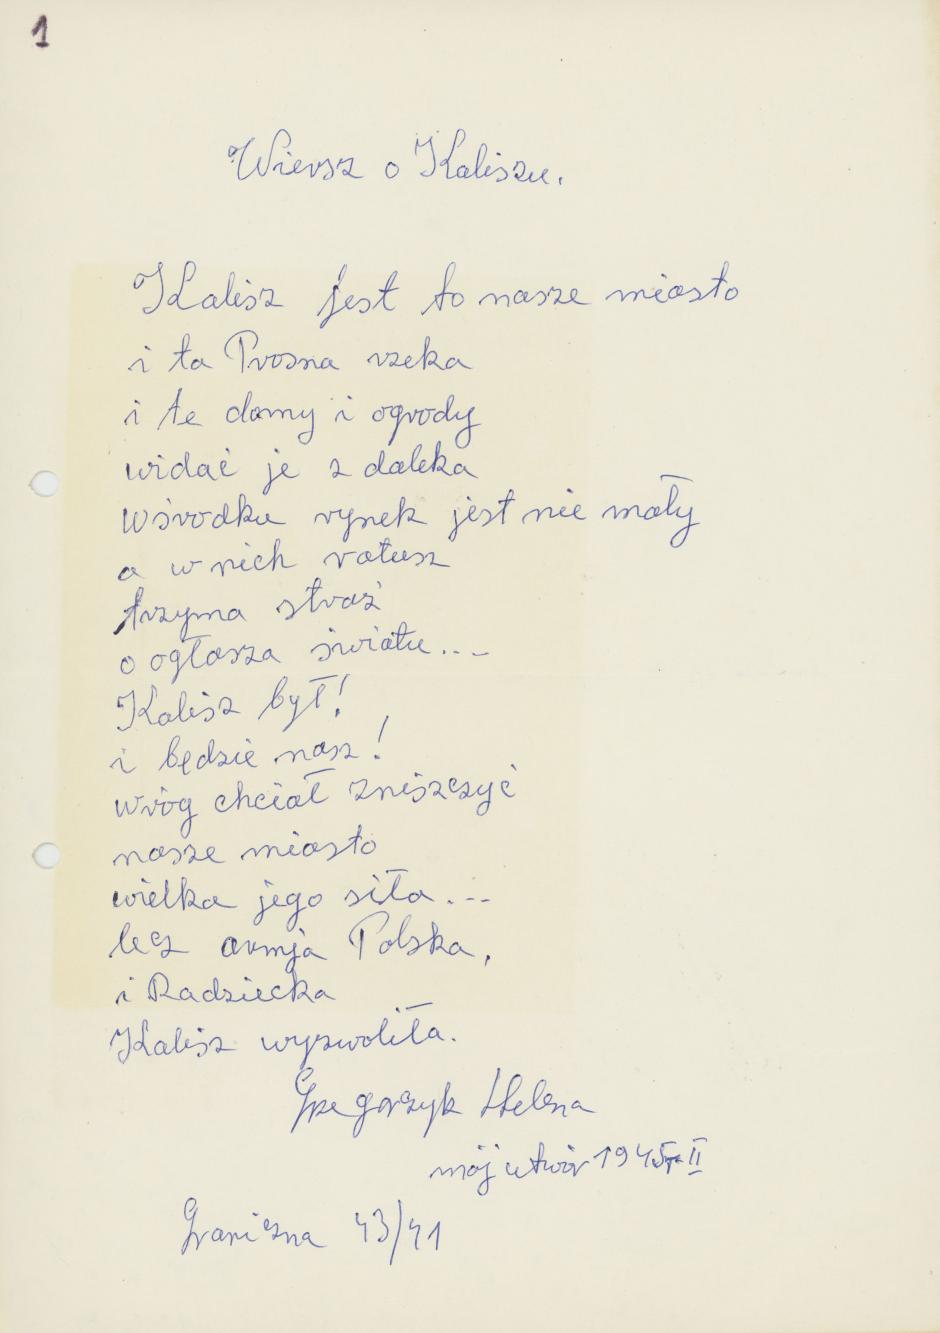 1
Wiersz o Kaliszu.
Kalisz jest to nasze miasto
i ta Prosna rzeka
i te domy i ogrody
widać je z daleka
wśrodku rynek jest nie mały
a w nich ratusz
trzyma straż
o ogłasza światu...
Kalisz był!
i będzie nasz!
wróg chciał zniszczyć
nasze miasto
wielka jego siła...
lecz armja Polska,
i Radziecka
Kalisz wyzwoliła.
Grzegorzyk Helena
mój utwór 1945r II
Graniczna 43/41